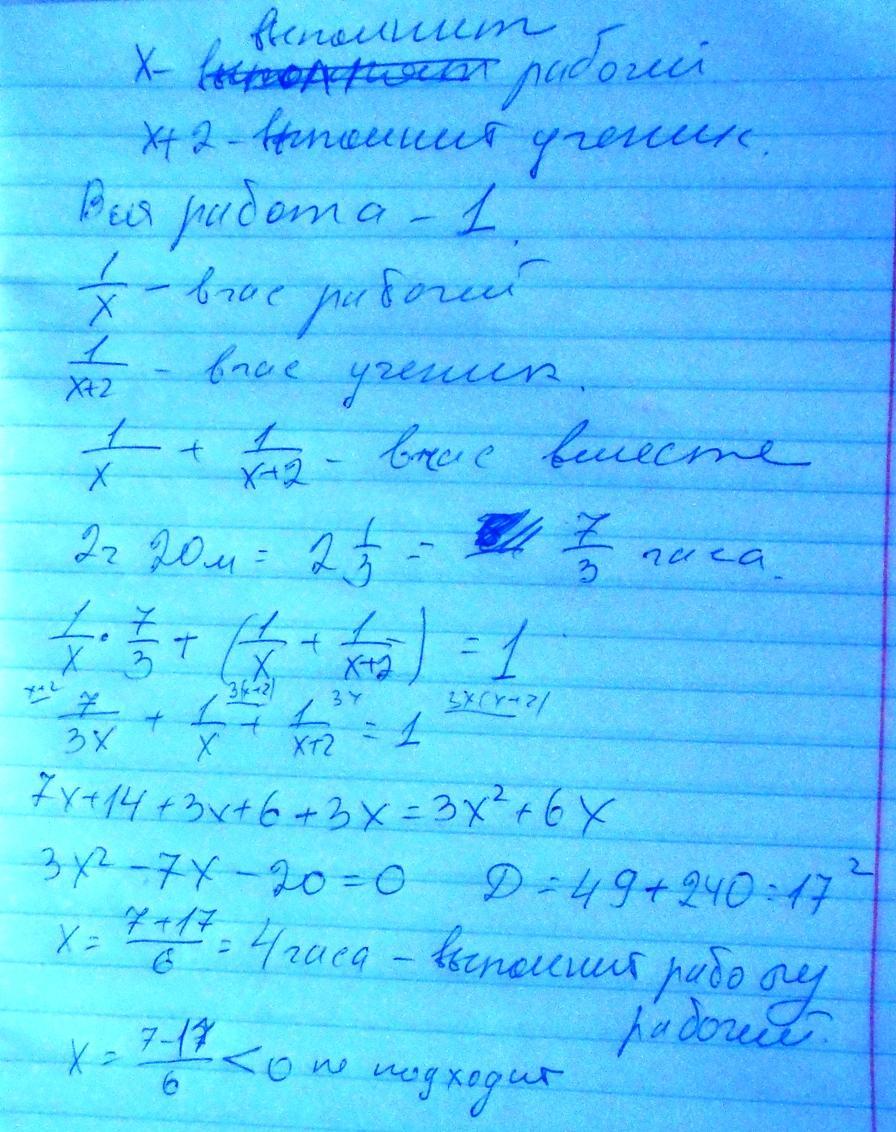 выполнит
x - выполняет рабочий
x+2 - выполнит ученик.
Вся работа - 1.
1/x - в час рабочий
1/(x+2) - в час ученик.
1/x + 1/(x+2) - в час вместе
2ч 20м = 2 1/3 = 7/3 часа.
1/x · 7/3 + (1/x + 1/(x+2)) = 1
x+2 3(x+2) 3x 3x(x+2)
7/3x + 1/x + 1/(x+2) = 1
7x+14+3x+6+3x=3x²+6x
3x²-7x-20=0 D=49+240=17²
x = (7+17)/6 = 4 часа - выполнит работу
рабочий.
x = (7-17)/6 < 0 не подходит